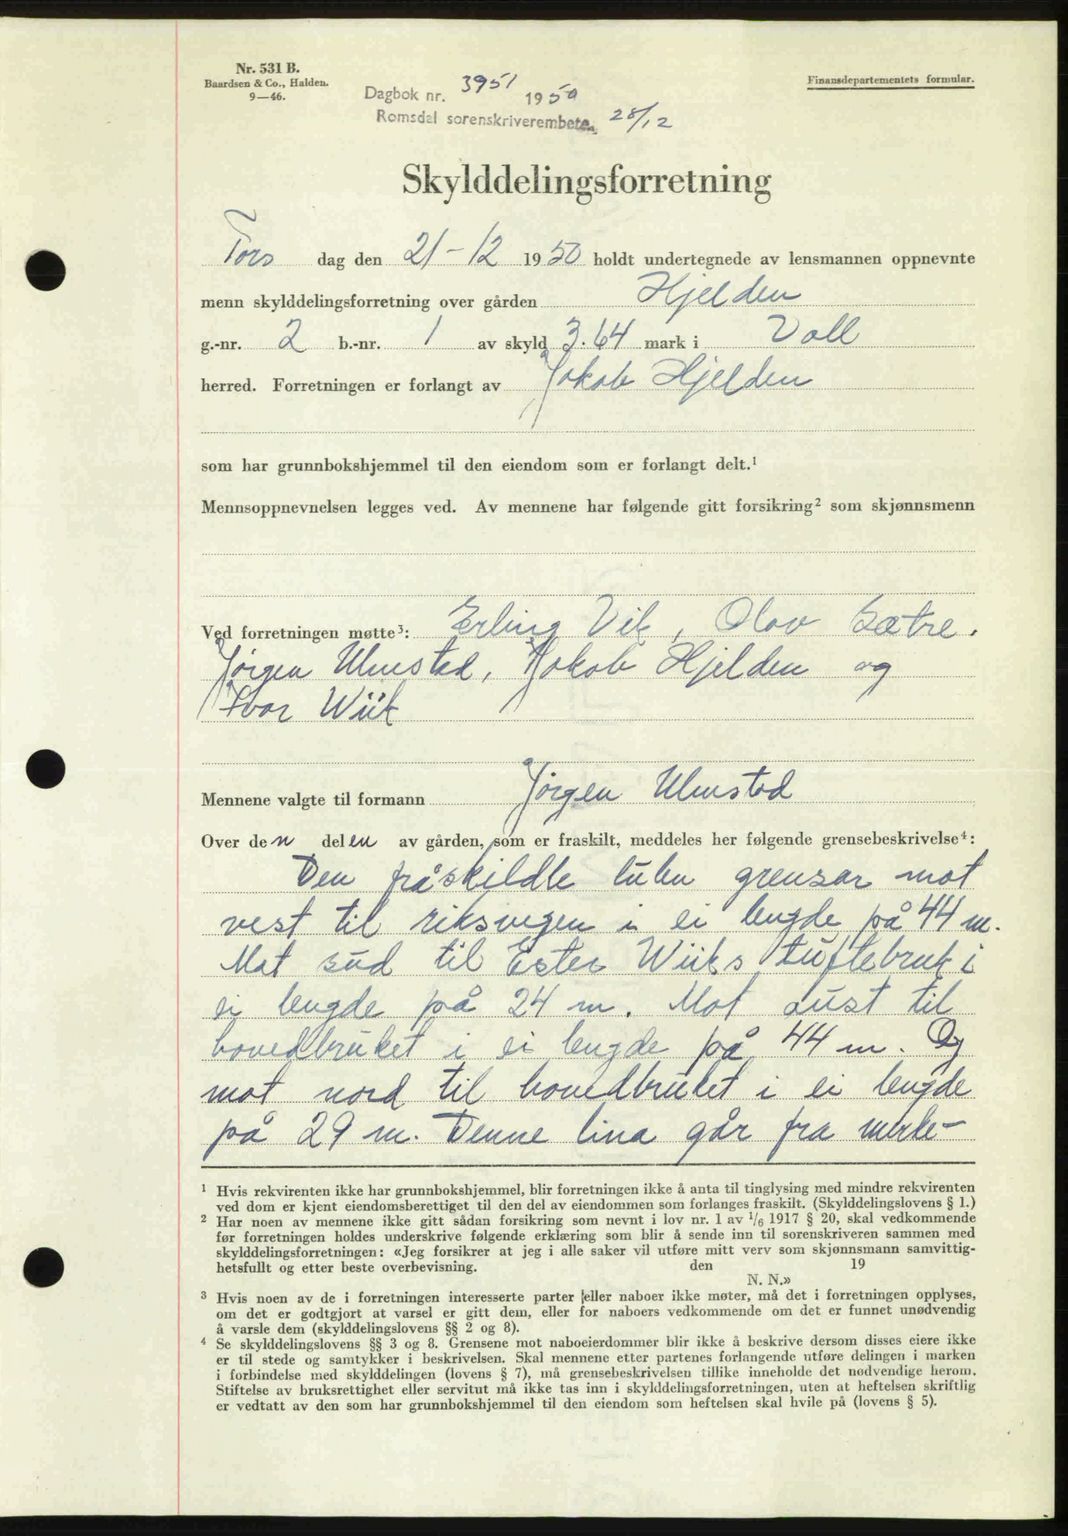 Nr. 531 B.
Baardsen & Co., Halden.
9—46.
Dagbok nr. 3951 1950
Romsdal sorenskriverembete, 28/12
Finansdepartementets formular.
Skylddelingsforretning
Tors dag den 21-12 1950 holdt undertegnede av lensmannen oppnevnte
menn skylddelingsforretning over gården Hjelden
g.-nr. 2 b.-nr. 1 av skyld 3.64 mark i Voll
herred. Forretningen er forlangt av Jakob Hjelden
som har grunnbokshjemmel til den eiendom som er forlangt delt.¹
Mennsoppnevnelsen legges ved. Av mennene har følgende gitt forsikring² som skjønnsmenn
Ved forretningen møtte³: Erling Vik, Olav Sætre,
Jørgen Ulmstad, Jakob Hjelden og
Ivar Wiik
Mennene valgte til formann Jørgen Ulmstad
Over den delen av gården, som er fraskilt, meddeles her følgende grensebeskrivelse⁴:
Den fråskildte luten grensar mot
vest til riksvegen i ei lengde på 44 m.
Mot sud til Ester Wiiks tuftebruk i
ei lengde på 24 m. Mot aust til
hovedbruket i ei lengde på 44 m. Og
mot nord til hovedbruket i ei lengde
på 29 m. Denne lina går fra merke-
¹ Hvis rekvirenten ikke har grunnbokshjemmel, blir forretningen ikke å anta til tinglysing med mindre rekvirenten
ved dom er kjent eiendomsberettiget til den del av eiendommen som forlanges fraskilt. (Skylddelingslovens § 1.)
² Har noen av mennene ikke gitt sådan forsikring som nevnt i lov nr. 1 av 1/6 1917 § 20, skal vedkommende
før forretningen holdes underskrive følgende erklæring som blir å sende inn til sorenskriveren sammen med
skylddelingsforretningen: «Jeg forsikrer at jeg i alle saker vil utføre mitt verv som skjønnsmann samvittig-
hetsfullt og etter beste overbevisning. den 19
N. N.»
³ Hvis noen av de i forretningen interesserte parter eller naboer ikke møter, må det i forretningen opplyses,
om det er godtgjort at varsel er gitt dem, eller for naboers vedkommende om det er funnet unødvendig
å varsle dem (skylddelingslovens §§ 2 og 8).
⁴ Se skylddelingslovens §§ 3 og 8. Grensene mot naboeierdommer blir ikke å beskrive dersom disses eiere ikke
er til stede og samtykker i beskrivelsen. Skal mennene etter partenes forlangende utføre delingen i marken
i forbindelse med skylddelingen (lovens § 7), må grensebeskrivelsen tillike inneholde det nødvendige herom.
Stiftelse av bruksrettighet eller servitut må ikke tas inn i skylddelingsforretningen, uten at heftelsen skriftlig
er vedtatt av den som har grunnbokshjemmel til den eiendom som heftelsen skal hvile på (lovens § 5).